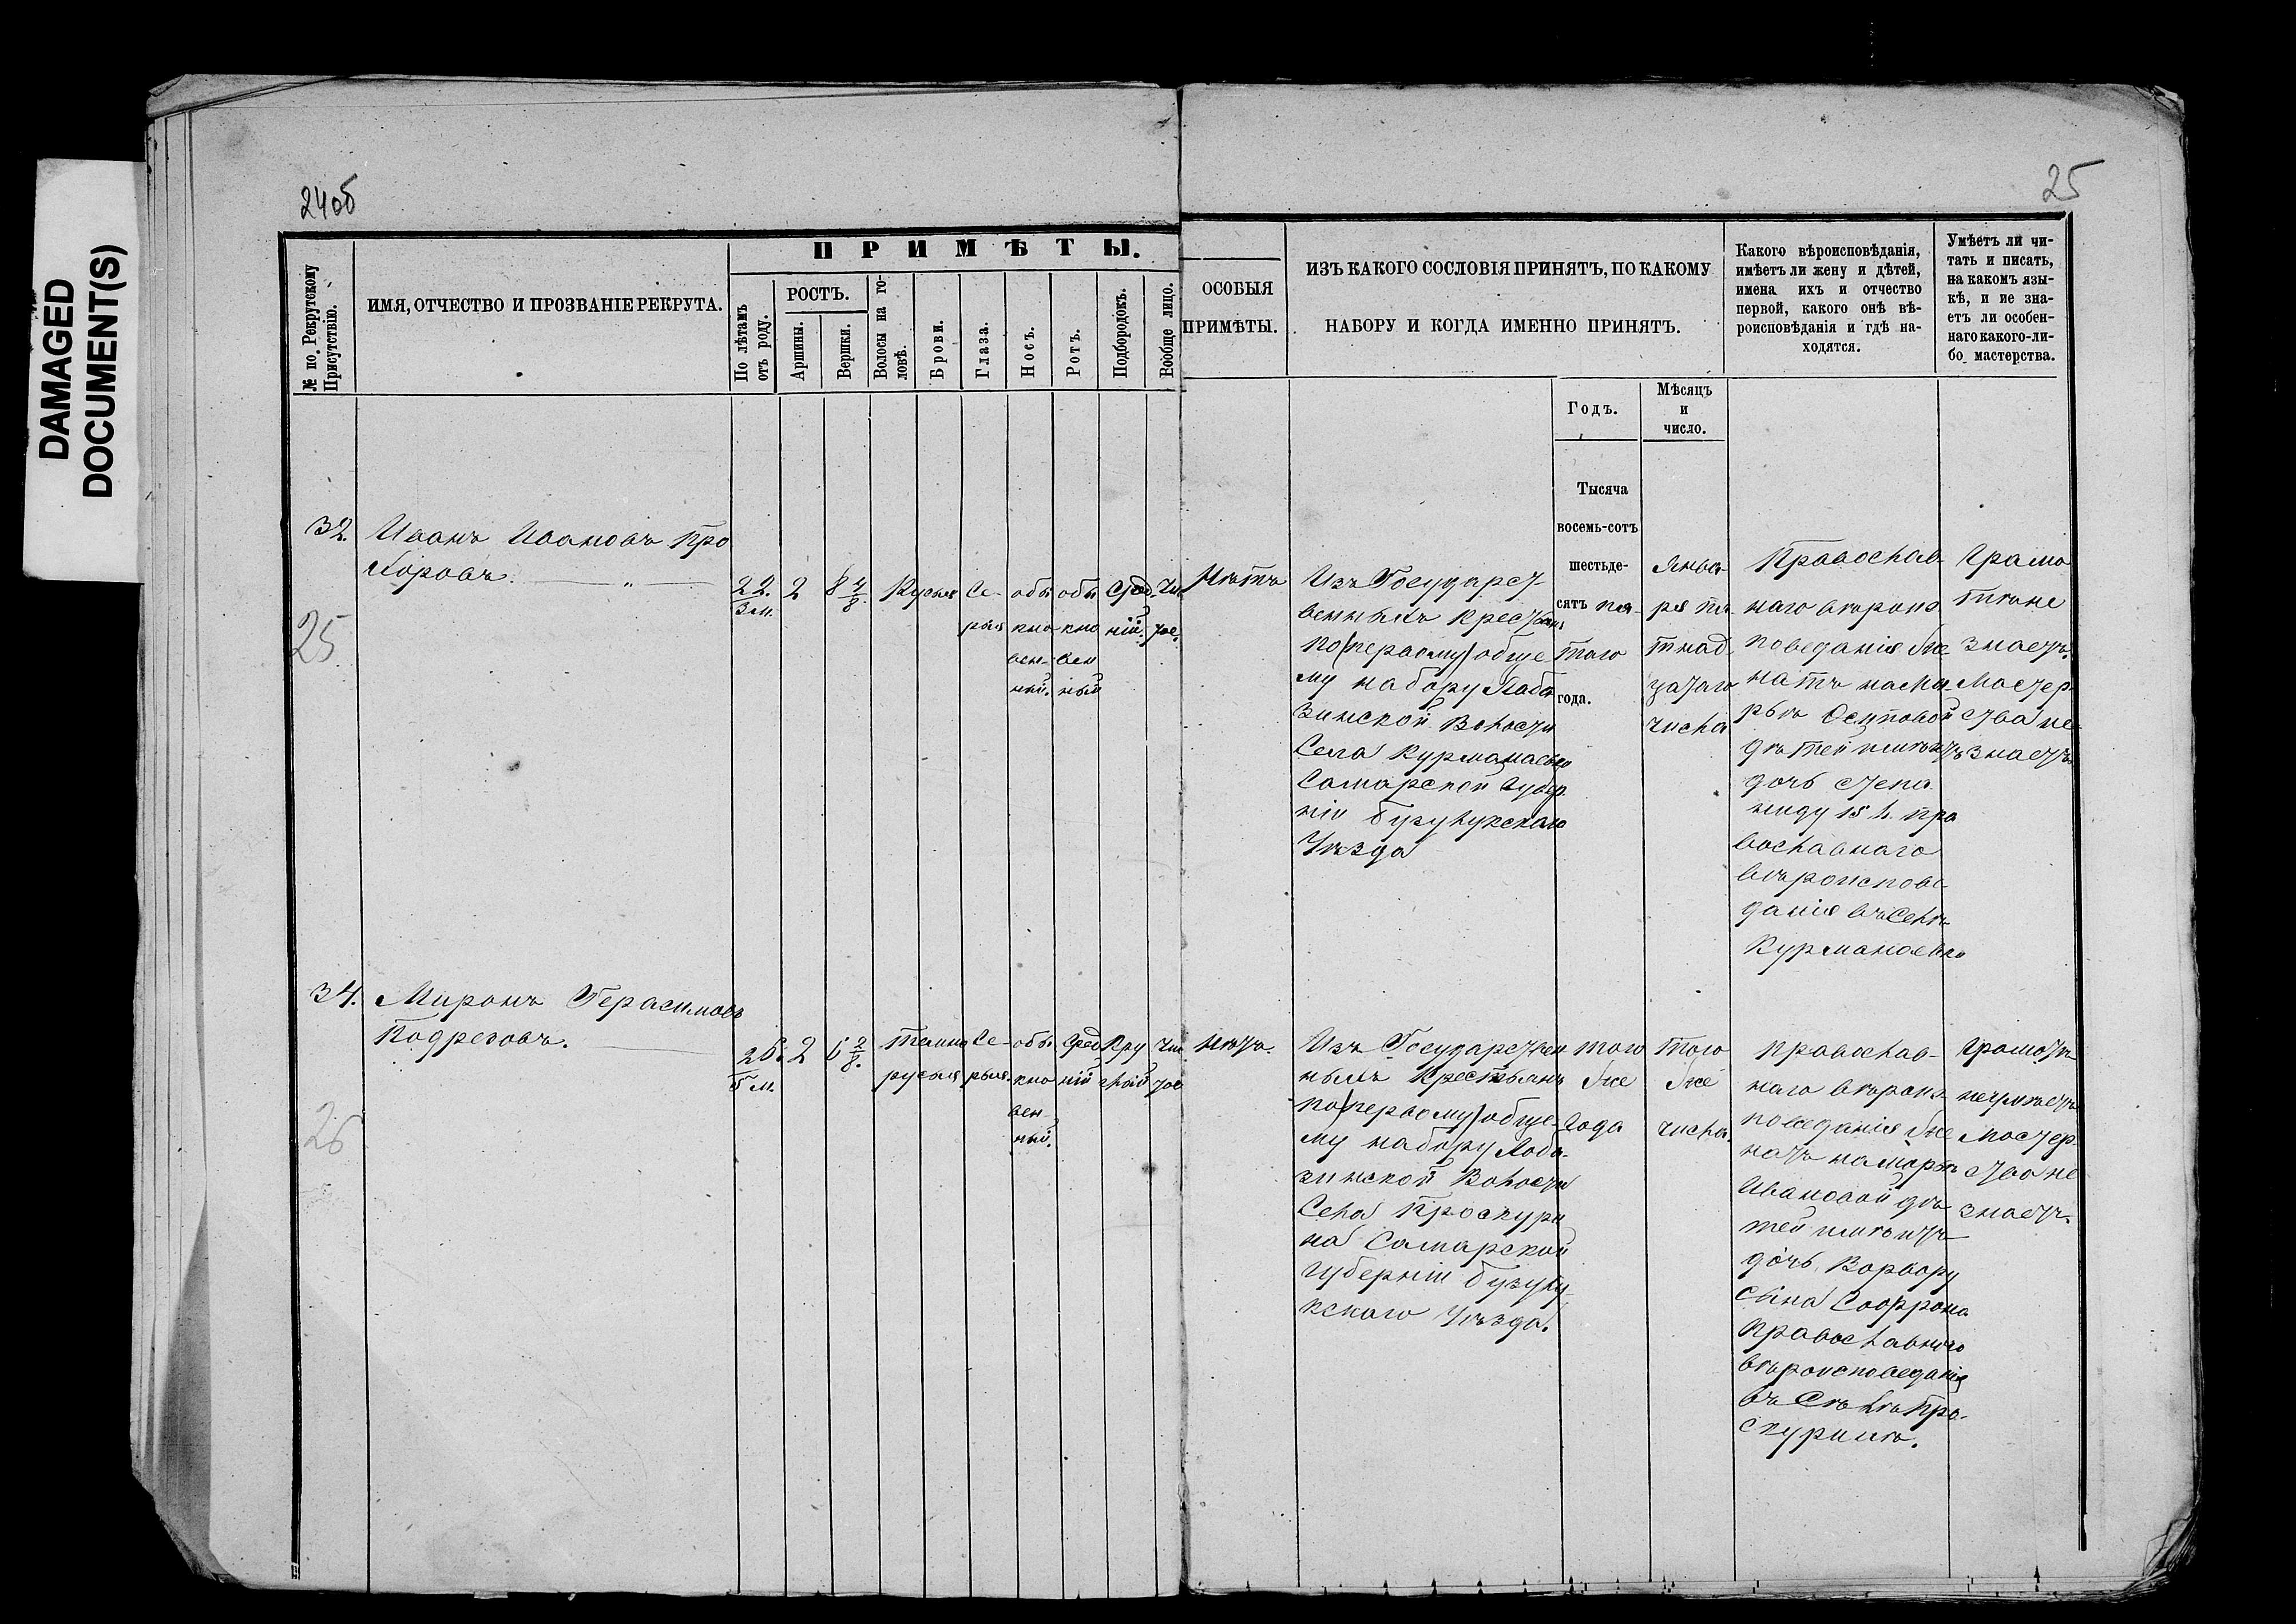 DAMAGED
DOCUMENT(S)
24об
25
№ по Рекрутскому
Присутствію.
ИМЯ, ОТЧЕСТВО И ПРОЗВАНІЕ РЕКРУТА.
ПРИМѢТЫ.
По лѣтамъ
отъ роду.
РОСТЪ.
Аршины.
Вершки.
Волосы на го-
ловѣ.
Брови.
Глаза.
Носъ.
Ротъ.
Подбородокъ.
Вообще лицо.
ОСОБЫЯ
ПРИМѢТЫ.
ИЗЪ КАКОГО СОСЛОВІЯ ПРИНЯТЪ, ПО КАКОМУ
НАБОРУ И КОГДА ИМЕННО ПРИНЯТЪ.
Годъ.
Мѣсяцъ
и
число.
Какого вѣроисповѣданія,
имѣетъ ли жену и дѣтей,
имена ихъ и отчество
первой, какого онѣ вѣ-
роисповѣданія и гдѣ на-
ходятся.
Умѣетъ ли чи-
тать и писать,
на какомъ язы-
кѣ, и не зна-
етъ ли особен-
наго какого-ли-
бо мастерства.
32.
25
Иванъ Ивановъ Про
хоровъ.
22.
3 м.
2
8 4/8.
Русыя
Се-
рыя
обы
кно
вен-
ный.
обы
кно
вен
ный
Сред-
ній.
Чи
тое.
Нѣтъ
Изъ Государст-
венныхъ Крестьянъ
по (первому) обще
му набору Лаба
зинской Волости
Села Курманаевки
Самарской Губер
ніи Бузулукскаго
Уѣзда
Тысяча
восемь-сотъ
шестьде-
сятъ пя-
таго
года.
Янва-
ря пя-
тнад
цатаго
числа
Православ-
наго вѣроис
поведанія Же
натъ на Ма-
рьѣ Осиповой
дѣтей имѣетъ
дочь Степа
ниду 1½ л. пра
вославнаго
вѣроиспове-
данія въ Селѣ
Курманаевки
Грамо
тѣ не
знаетъ.
Мастер
ства не
знаетъ.
34.
26
Миронъ Герасимовъ
Подрезовъ.
26.
5 м.
2
6 2/8.
Темно
русыя
Се-
рыя.
обы
кно
вен
ный.
Сред
ній
Кру
глый
Чис
тое
Нѣтъ.
Изъ Государствен
ныхъ Крестьянъ
по (первому) обще-
му набору Лаба-
зинской Волости
Села Проскури
на Самарской
Губерніи Бузулу-
кскаго Уѣзда.
того
же
Года
того
же
числа.
Православ-
наго вѣроис
поведанія Же
натъ на Марьѣ
Ивановой дѣ
тей имѣетъ
дочь Варвару
сына Софрона
Православнаго
вѣроисповеданія
въ Сѣлѣ Про-
скуринѣ.
Грамотѣ
неумѣетъ
Мастер
ства не
знаетъ.